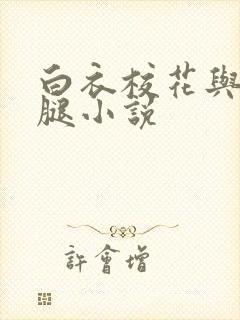 白衣校花與
腿小説
許會增